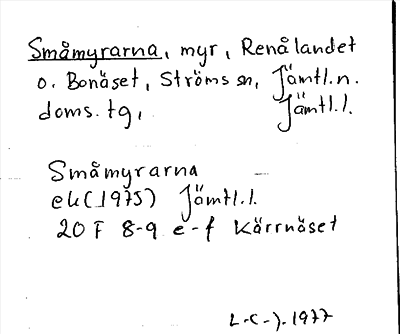 Småmyrarna, myr, Renålandet
o. Bonäset, Ströms sn, Jämtl.n.
doms. tg, Jämtl.l.
Småmyrarna
ek (1975) Jämtl.l.
20 F 8-9 e-f Kärrnäset
L-C-J. 1977